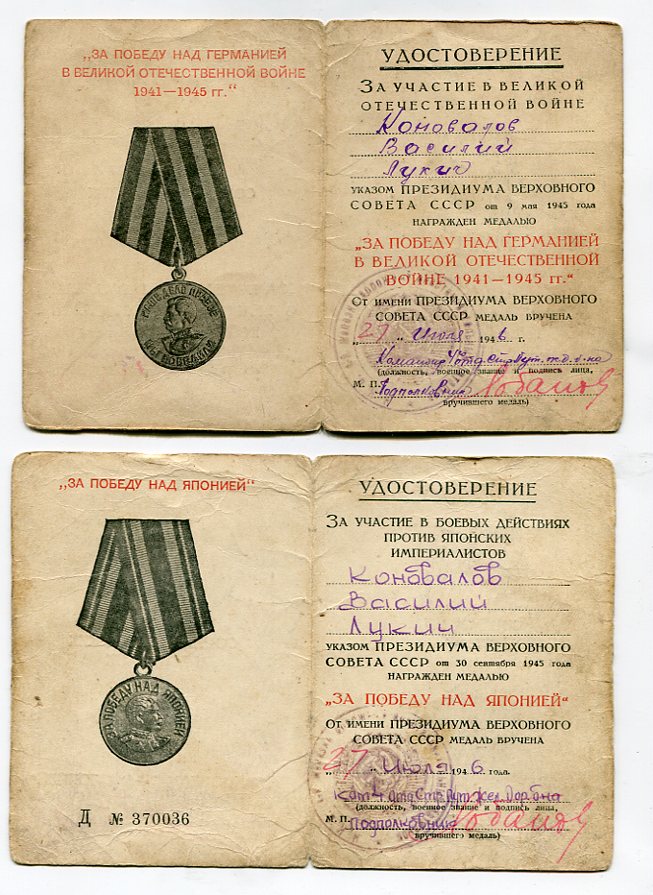 „ЗА ПОБЕДУ НАД ГЕРМАНИЕЙ
В ВЕЛИКОЙ ОТЕЧЕСТВЕННОЙ ВОЙНЕ
1941—1945 гг.“
НАШЕ ДЕЛО ПРАВОЕ
МЫ ПОБЕДИЛИ
УДОСТОВЕРЕНИЕ
ЗА УЧАСТИЕ В ВЕЛИКОЙ
ОТЕЧЕСТВЕННОЙ ВОЙНЕ
Коновалов
Василий
Лукич
УКАЗОМ ПРЕЗИДИУМА ВЕРХОВНОГО
СОВЕТА СССР от 9 мая 1945 года
НАГРАЖДЕН МЕДАЛЬЮ
„ЗА ПОБЕДУ НАД ГЕРМАНИЕЙ
В ВЕЛИКОЙ ОТЕЧЕСТВЕННОЙ
ВОЙНЕ 1941—1945 гг.“
ОТ ИМЕНИ ПРЕЗИДИУМА ВЕРХОВНОГО
СОВЕТА СССР МЕДАЛЬ ВРУЧЕНА
„27“ Июля 1946 г.
Командир
(должность, военное звание и подпись лица,
М. П. Подполковник
вручившего медаль)
„ЗА ПОБЕДУ НАД ЯПОНИЕЙ“
ЗА ПОБЕДУ НАД ЯПОНИЕЙ
Д № 370036
УДОСТОВЕРЕНИЕ
ЗА УЧАСТИЕ В БОЕВЫХ ДЕЙСТВИЯХ
ПРОТИВ ЯПОНСКИХ
ИМПЕРИАЛИСТОВ
Коновалов
Василий
Лукич
УКАЗОМ ПРЕЗИДИУМА ВЕРХОВНОГО
СОВЕТА СССР от 30 сентября 1945 года
НАГРАЖДЕН МЕДАЛЬЮ
„ЗА ПОБЕДУ НАД ЯПОНИЕЙ“
ОТ ИМЕНИ ПРЕЗИДИУМА ВЕРХОВНОГО
СОВЕТА СССР МЕДАЛЬ ВРУЧЕНА
„27“ Июля 1946 года.
(должность, военное звание и подпись лица,
М. П. подполковник
вручившего медаль)